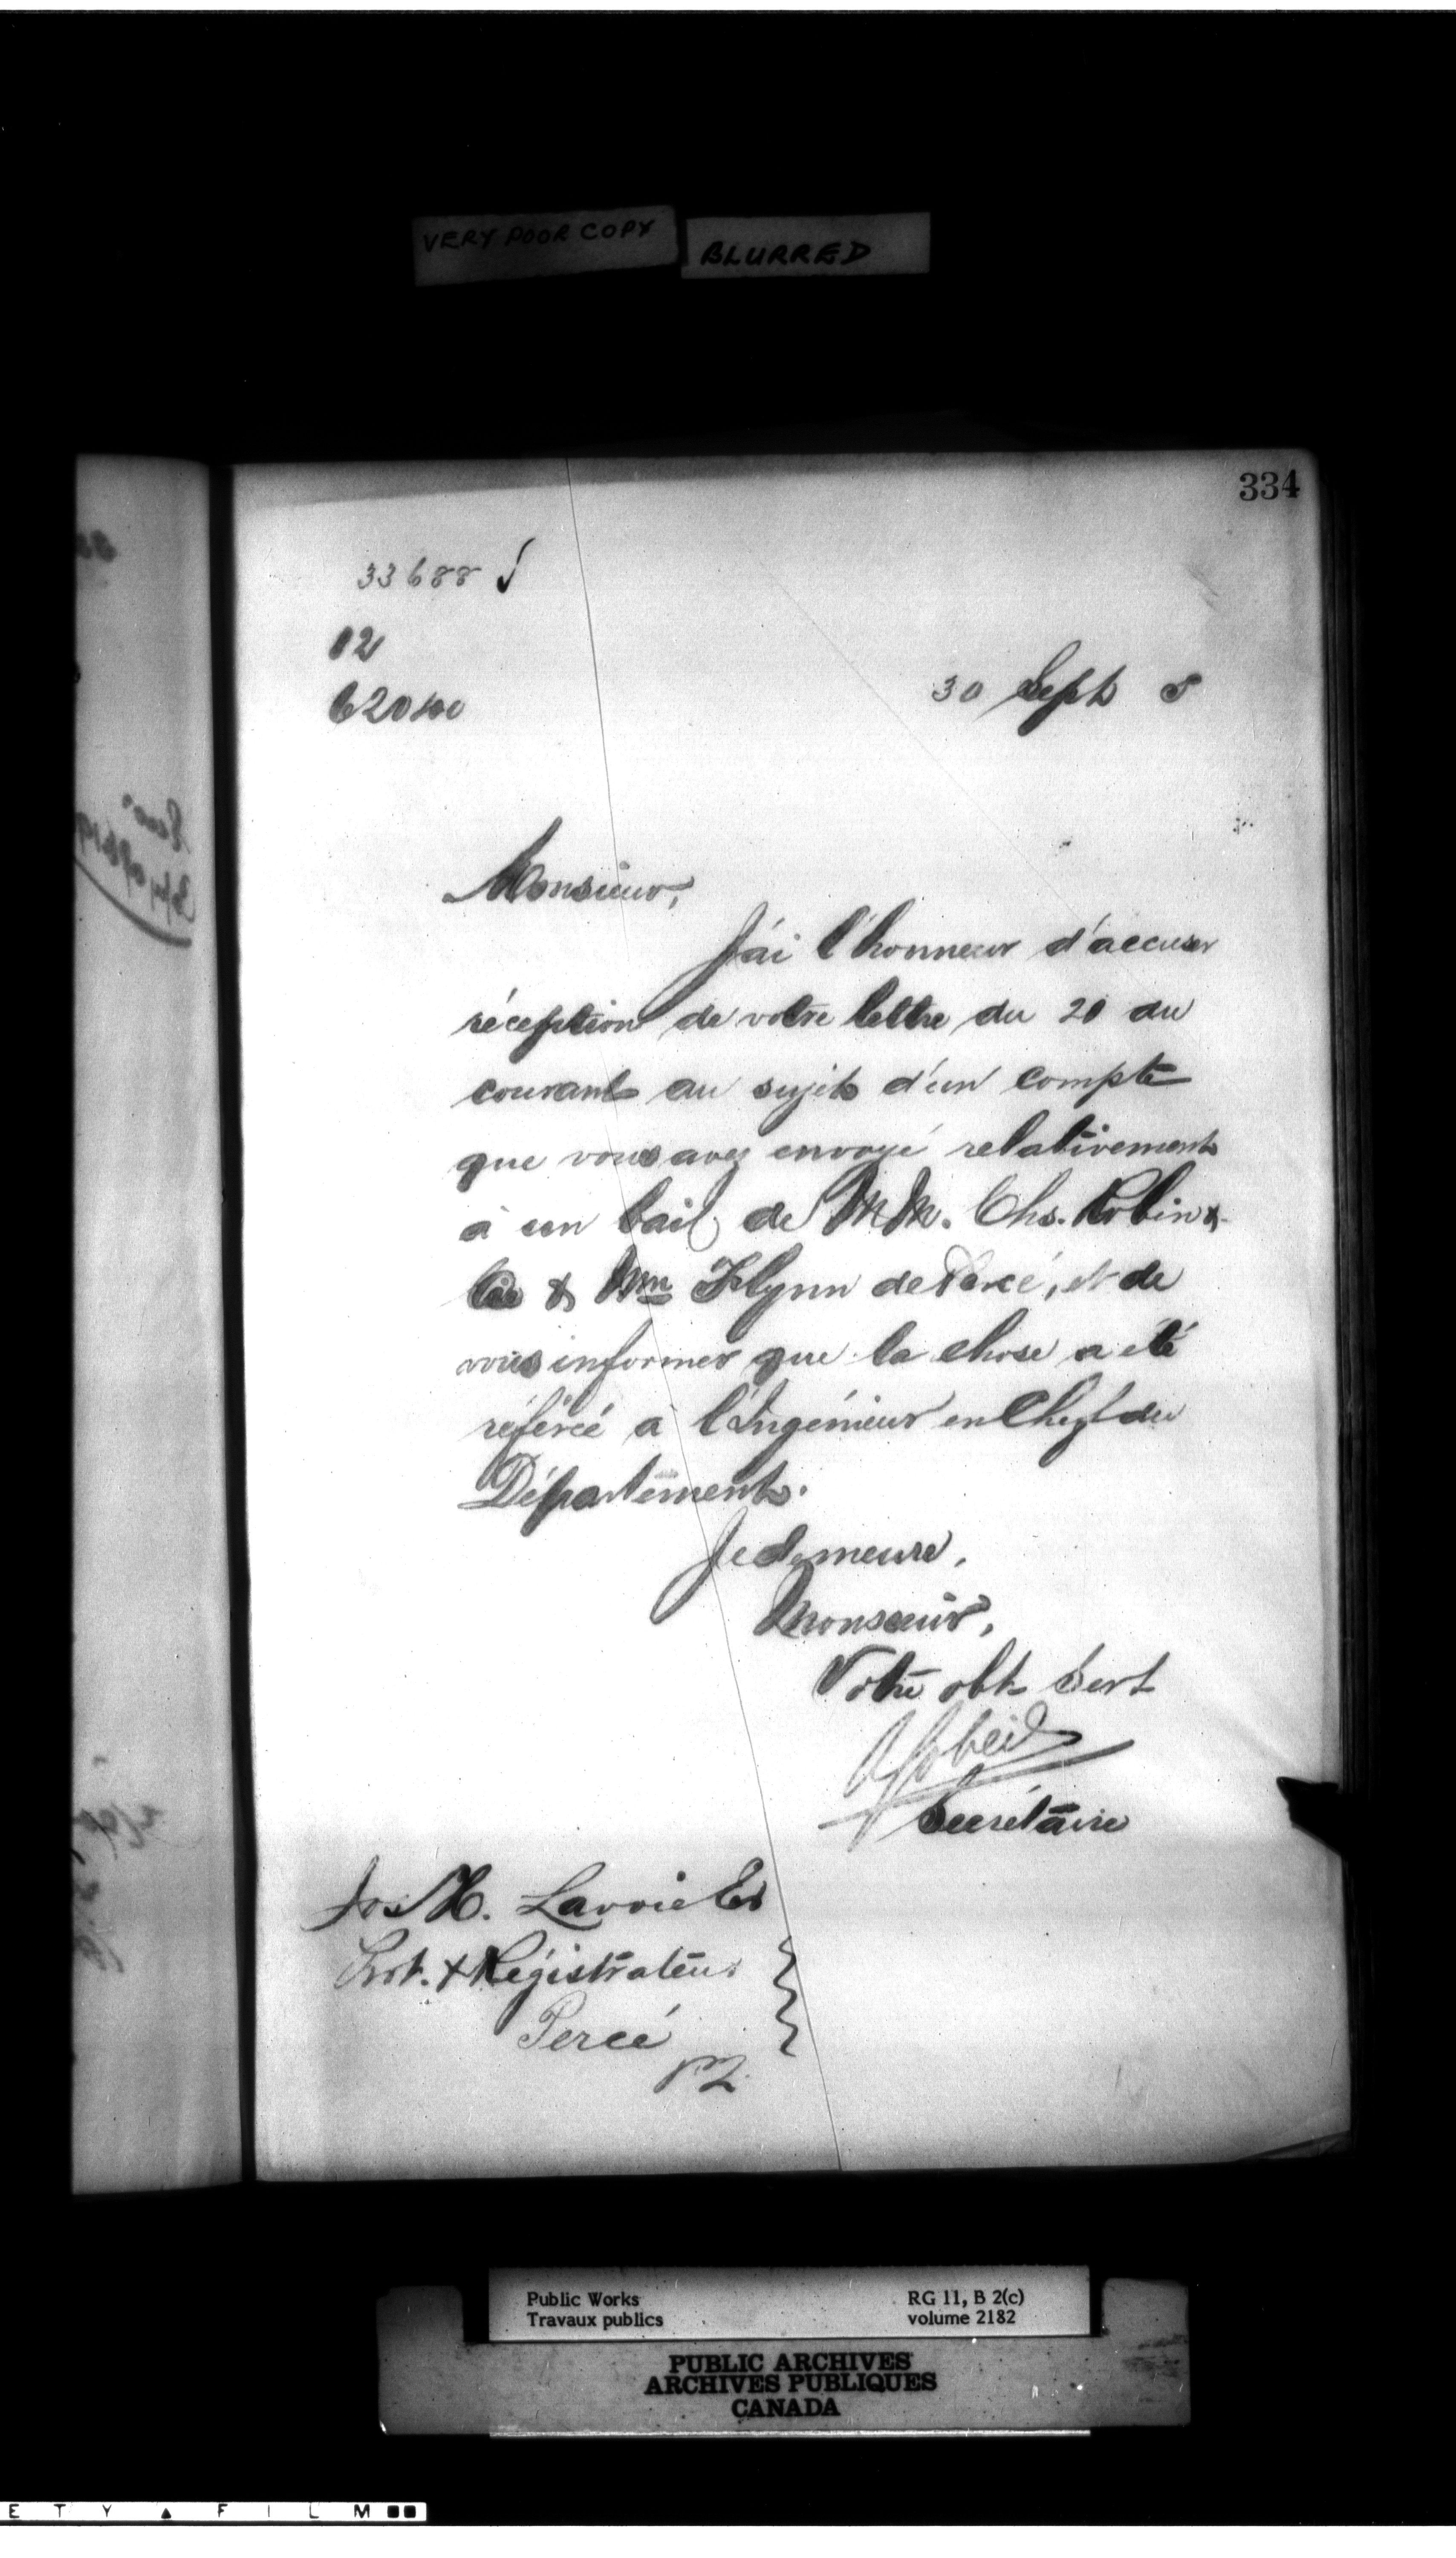 VERY POOR COPY
BLURRED
334
33688
12
30 Sept 8
Monsieur,
J'ai l'honneur d'accuser
réception de votre lettre du 20 du
courant au sujet d'un compte
que vous avez envoyé relativement
à un bail de MM. Chs. Robin &
Cie & Wm Flynn de Percé, et de
vous informer que la chose a été
référée à l'Ingénieur en Chef du
Département.
Je demeure,
Monsieur,
Votre obt Sert
Secrétaire
Jos M. Lavoie
Prot. & Régistrateur
Percé
PQ
Public Works
Travaux publics
RG 11, B 2(c)
volume 2182
PUBLIC ARCHIVES
ARCHIVES PUBLIQUES
CANADA
E T Y ▲ F I L M